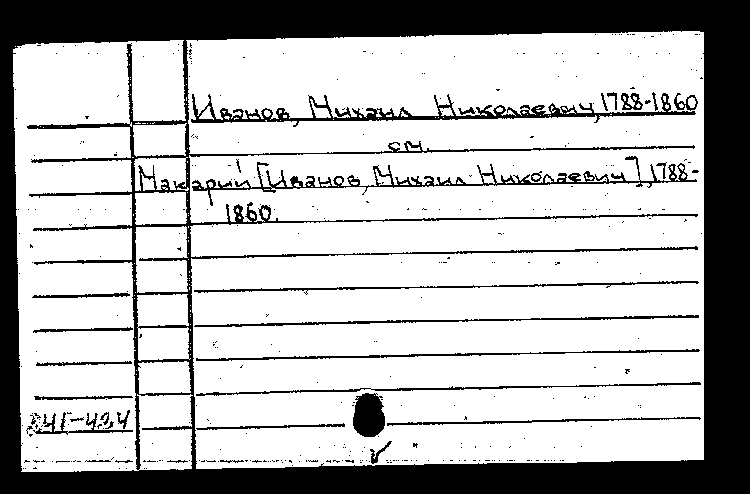 Иванов, Михаил Николаевич, 1788-1860
см.
Макарий [Иванов, Михаил Николаевич], 1788-
1860.